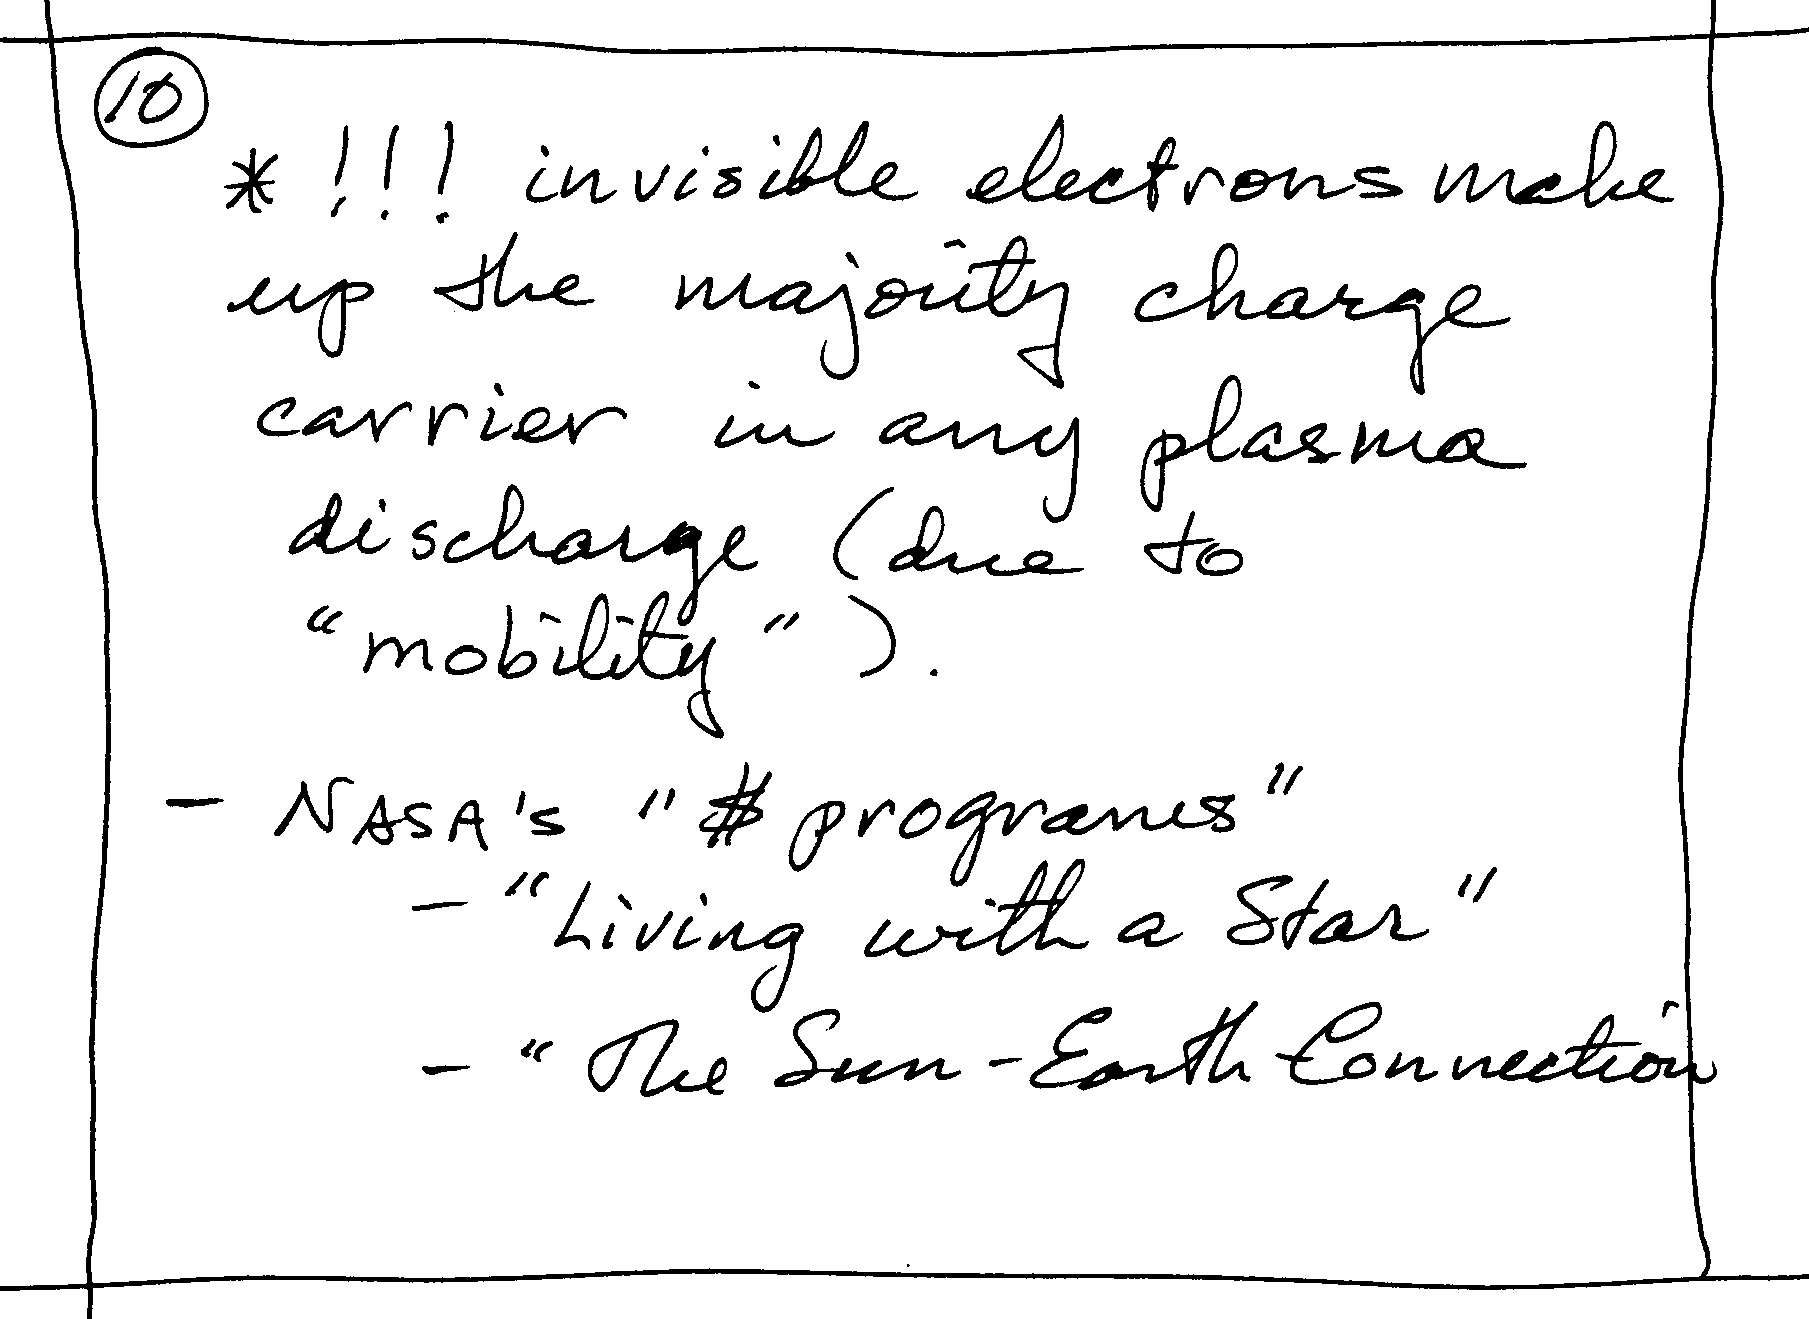 10
* !!! invisible electrons make
up the majority charge
carrier in any plasma
discharge (due to
"mobility").
- NASA's "# programs"
- "Living with a Star"
- "The Sun-Earth Connection